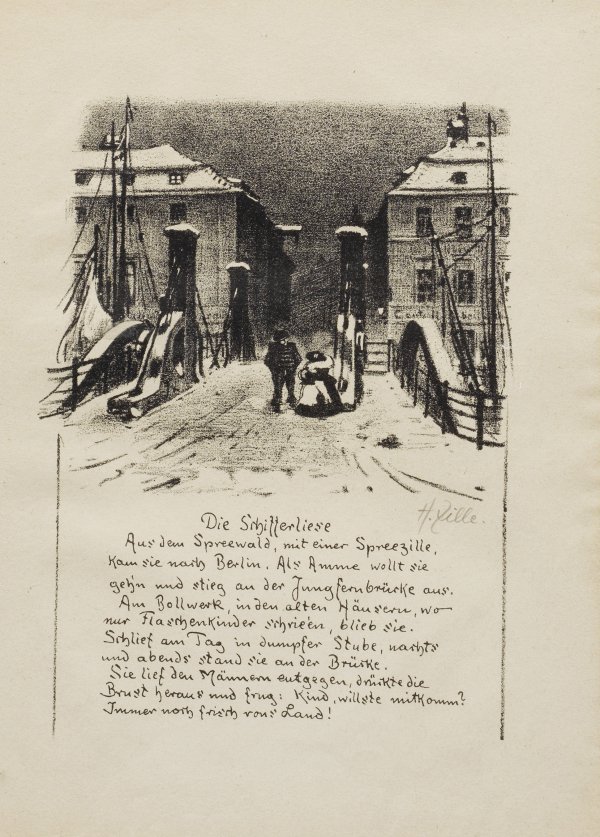 H. Zille.
Die Schifferliese
Aus dem Spreewald, mit einer Spreezille,
kam sie nach Berlin. Als Amme wollt sie
gehn und stieg an der Jungfernbrücke aus.
Am Bollwerk, in den alten Häusern, wo
nur Flaschenkinder schrieen, blieb sie.
Schlief am Tag in dumpfer Stube, nachts
und abends stand sie an der Brücke.
Sie lief den Männern entgegen, drückte die
Brust heraus und frug: Kind, willste mitkomm?
Immer noch frisch vons Land!